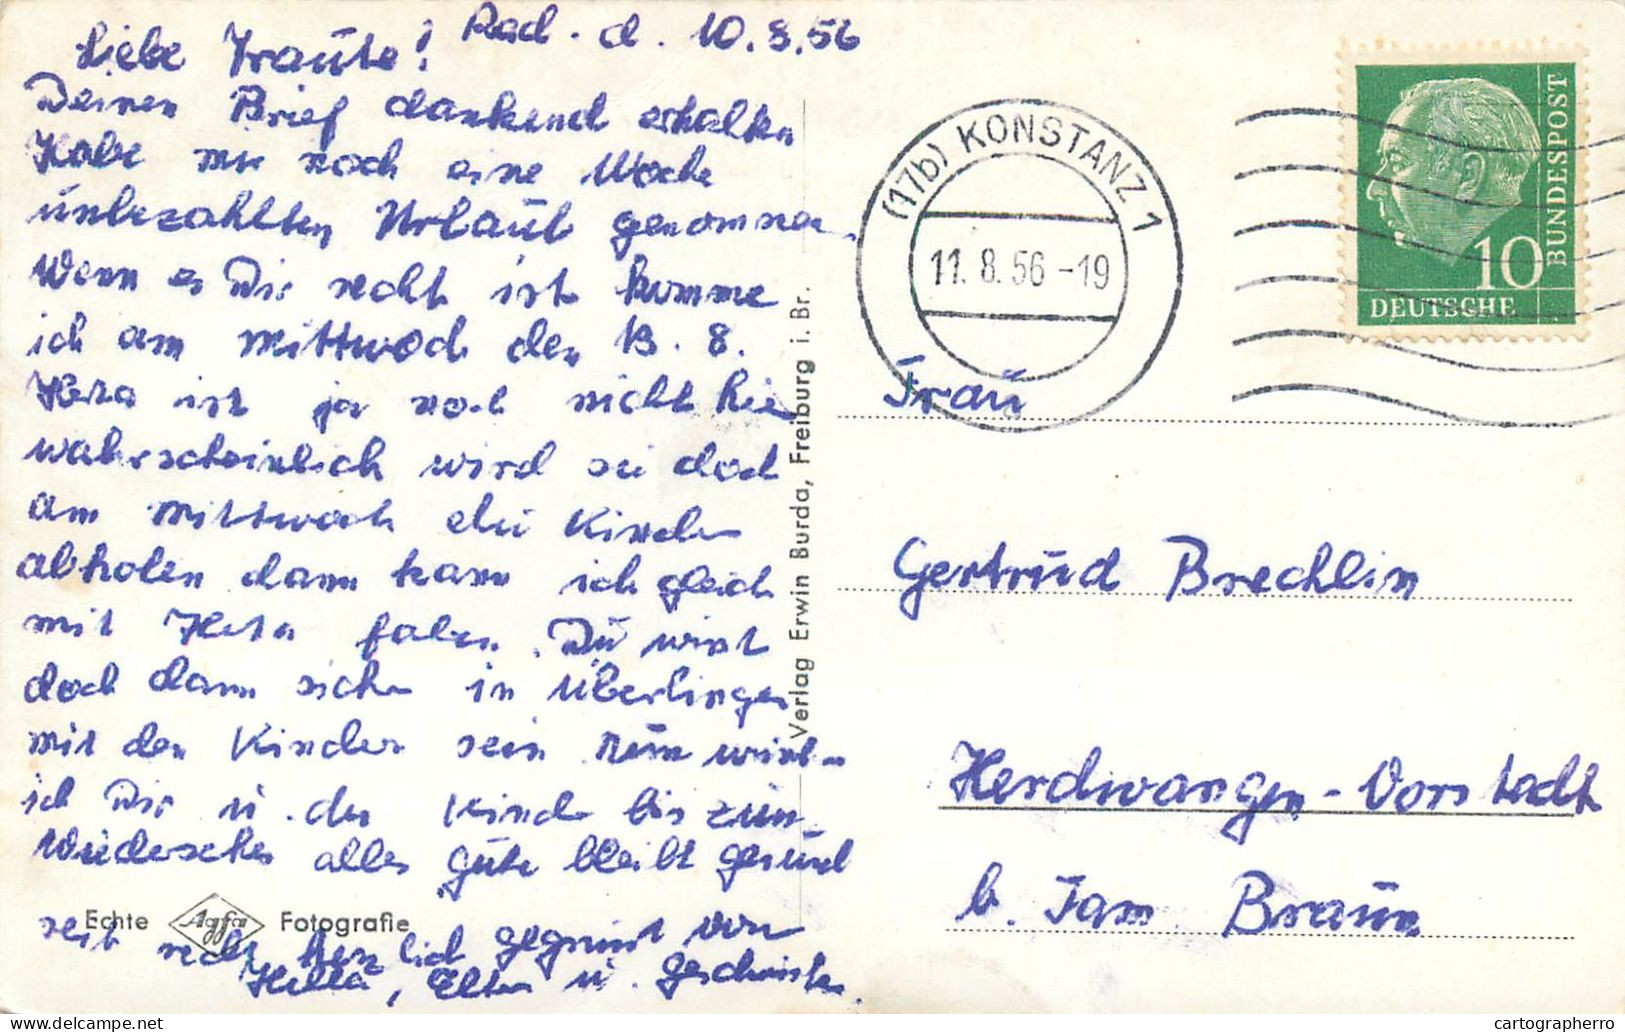 Rad. d. 10.8.56
Liebe Traute!
Deinen Brief dankend erhalten
Habe mir noch eine Woche
unbezahlten Urlaub genommen.
Wenn es Dir recht ist komme
ich am Mittwoch den 13. 8.
Herta ist ja noch nicht hier
wahrscheinlich wird sie doch
am Mittwoch die Kinder
abholen dann kann ich gleich
mit Herta fahren. Du wirst
doch dann sicher in Überlingen
mit den Kinder sein nun wünsch
ich Dir u. den Kinder bis zum
Wiedersehen alles gute bleibt gesund
seit recht herzlich gegrüsst von
Hella, Eltern u. Geschwister.
Echte Agfa Fotografie
Verlag Erwin Burda, Freiburg i. Br.
(17b) KONSTANZ 1
11. 8. 56 -19
10
DEUTSCHE
BUNDESPOST
Frau
Gertrud Brechlin
Herdwangen-Vorstadt
b. Fam Braun
cartographerro
delcampe.net